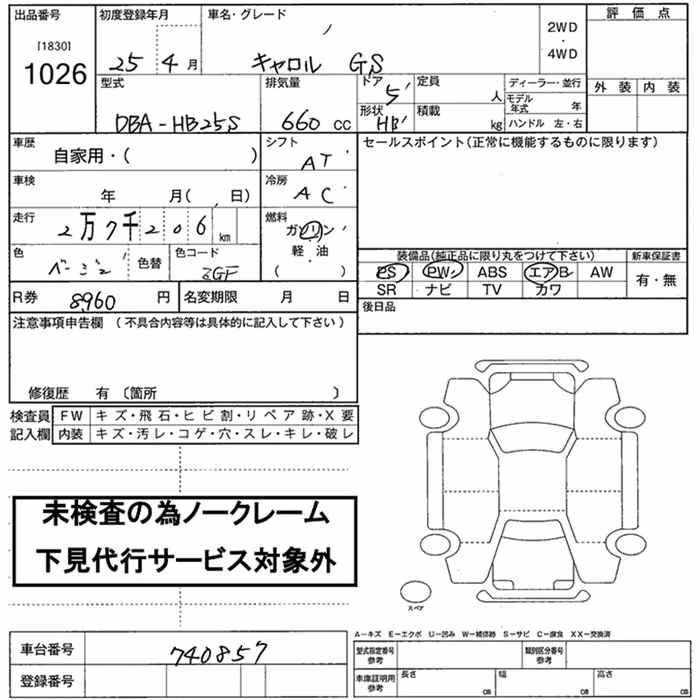 出品番号 初度登録年月 車名・グレード 評価点
[1830]
1026
25 4月 キャロル GS
2WD
・
4WD
型式 排気量 ドア 定員 ディーラー・並行 外装 内装
5 人 モデル年式 年
DBA-HB25S 660cc 形状 積載 ハンドル 左・右
HB kg
車歴 シフト セールスポイント(正常に機能するものに限ります)
自家用・( ) AT
車検 冷房
年 月( 、日) AC
走行 燃料
2万7千206km ガソリン
軽・油
( )
色 色替 色コード 装備品(純正品に限り丸をつけて下さい) 新車保証書
ベージュ ZGF PS PW ABS エアB AW 有・無
SR ナビ TV カワ
R券 8,960円 名変期限 月 日 後日品
注意事項申告欄(不具合内容等は具体的に記入して下さい)
修復歴 有〔箇所 〕
検査員 FW キズ・飛石・ヒビ割・リペア跡・X要
記入欄 内装 キズ・汚レ・コゲ・穴・スレ・キレ・破レ
未検査の為ノークレーム
下見代行サービス対象外
スペア
A−キズ E−エクボ U−凹み W−補修跡 S−サビ C−腐食 XX−交換済
車台番号 740857 型式指定番号 参考 類別区分番号 参考
登録番号 車庫証明用 参考 長さ cm 幅 cm 高さ cm